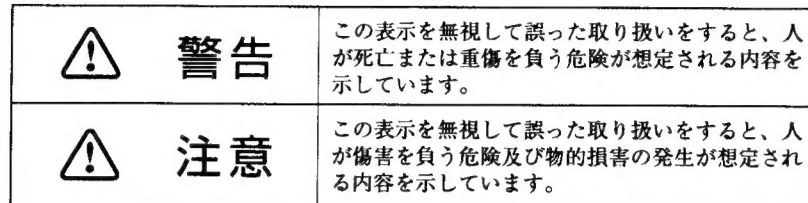 警告
この表示を無視して誤った取り扱いをすると、人
が死亡または重傷を負う危険が想定される内容を
示しています。
注意
この表示を無視して誤った取り扱いをすると、人
が傷害を負う危険及び物的損害の発生が想定され
る内容を示しています。